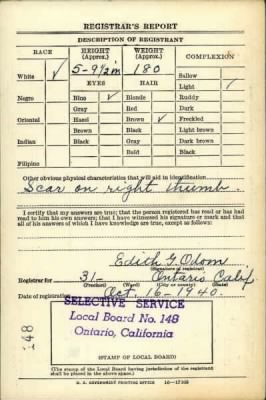 REGISTRAR'S REPORT
DESCRIPTION OF REGISTRANT
RACE
HEIGHT (Approx.)
WEIGHT (Approx.)
COMPLEXION
White ✓
5-9½in
180
Sallow
EYES
HAIR
Light ✓
Negro
Blue ✓
Blonde
Ruddy
Gray
Red
Dark
Oriental
Hazel
Brown ✓
Freckled
Brown
Black
Light brown
Indian
Black
Gray
Dark brown
Bald
Black
Filipino
Other obvious physical characteristics that will aid in identification
Scar on right thumb.
I certify that my answers are true; that the person registered has read or has had
read to him his own answers; that I have witnessed his signature or mark and that
all of his answers of which I have knowledge are true, except as follows:
Edith G. Odom
(Signature of registrar)
Registrar for 31- Ontario Calif
(Precinct) (Ward) (City or county) (State)
Date of registration Oct. 16-1940.
SELECTIVE SERVICE
Local Board No. 148
Ontario, California
148
(STAMP OF LOCAL BOARD)
(The stamp of the Local Board having jurisdiction of the registrant
shall be placed in the above space.)
U. S. GOVERNMENT PRINTING OFFICE